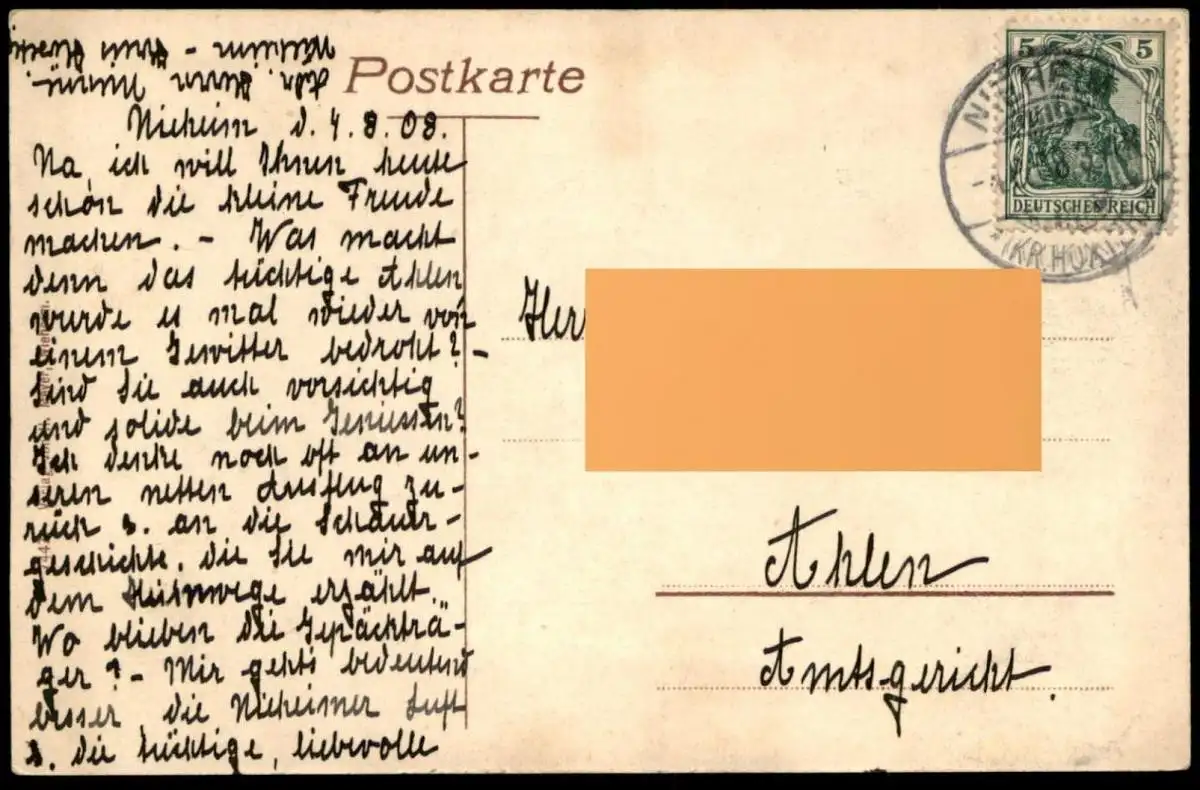 Postkarte
Nieheim d. 4.8.08.
Na, ich will Ihnen heute
schön die kleine Freude
machen. - Was macht
denn das tüchtige Ahlen
wurde es mal wieder von
einem Gewitter bedroht? -
Sind Sie auch vorsichtig
und solide beim Geniessen?
Ich denke noch oft an un-
seren netten Ausflug zu-
rück u. an die Schauer-
geschichte, die Sie mir auf
dem Heimwege erzählt.
Wo blieben die Gepäckträ-
ger? - Mir geht's bedeutend
besser die Nieheimer Luft
u. die tüchtige, liebevolle
Adr. Herrn
5 5
DEUTSCHES REICH
NIEHEIM
(KR. HÖXTER)
Herr
Ahlen
Amtsgericht.